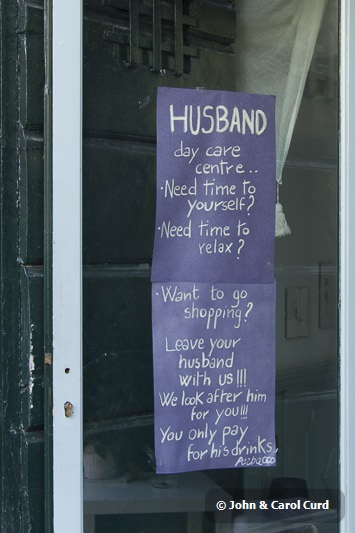 HUSBAND
day care
centre..
·Need time to
yourself?
·Need time to
relax?
·Want to go
shopping?
Leave your
husband
with us!!!
We look after him
for you!!!
You only pay
for his drinks.
© John & Carol Curd